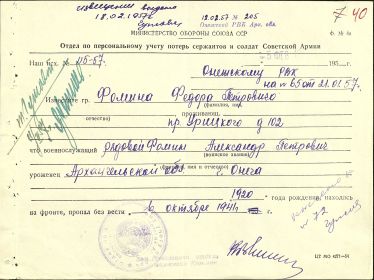 извещение выдано
18.02.1957г
12.02.57 № 205
Онежский РВК Арх. обл.
7 40
МИНИСТЕРСТВО ОБОРОНЫ СОЮЗА ССР
Ф. № 4а
Отдел по персональному учету потерь сержантов и солдат Советской Армии
195 г.
Онежскому РВК
на № 65 от 21.01.57.
Известите гр. Фомина Федора Петровича
(фамилия, имя,
отчество)
проживающ.
пр. Урицкого д 102
что военнослужащий рядовой Фомин Александр Петрович
(воинское звание)
(фамилия, имя и отчество)
уроженец Архангельской обл г. Онега
1920 года рождения, находясь
на фронте, пропал без вести в октябре 1941 г